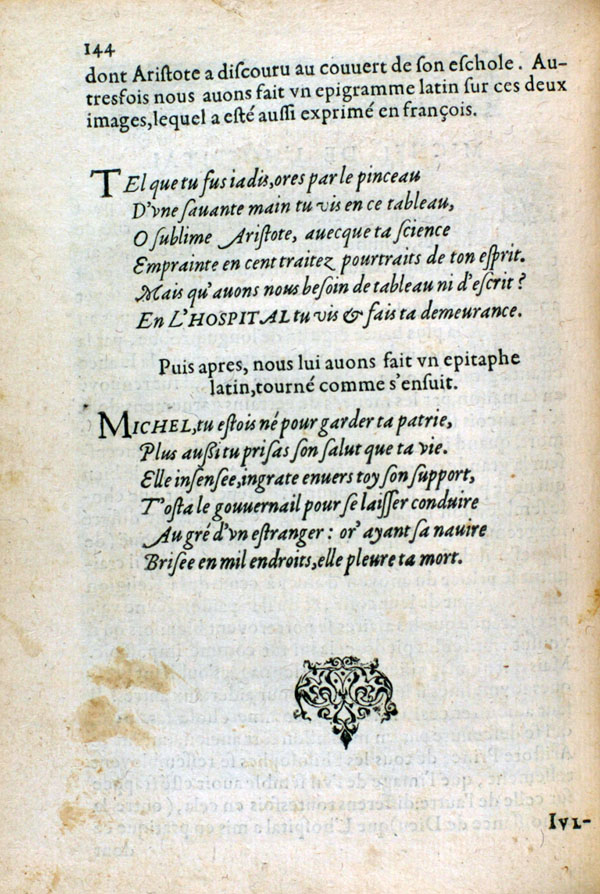 144
dont Ariſtote a diſcouru au couuert de ſon eſchole. Au-
tresfois nous auons fait vn epigramme latin ſur ces deux
images, lequel a eſté auſſi exprimé en françois.
TEl que tu fus iadis, ores par le pinceau
D'vne ſauante main tu vis en ce tableau,
O ſublime Ariſtote, auecque ta ſcience
Emprainte en cent traitez pourtraits de ton eſprit.
Mais qu'auons nous beſoin de tableau ni d'eſcrit?
En L'HOSPITAL tu vis & fais ta demeurance.
Puis apres, nous lui auons fait vn epitaphe
latin, tourné comme s'enſuit.
MICHEL, tu eſtois né pour garder ta patrie,
Plus auſſi tu priſas ſon ſalut que ta vie.
Elle inſenſee, ingrate enuers toy ſon ſupport,
T'oſta le gouuernail pour ſe laiſſer conduire
Au gré d'vn eſtranger: or' ayant ſa nauire
Briſee en mil endroits, elle pleure ta mort.
IVL-